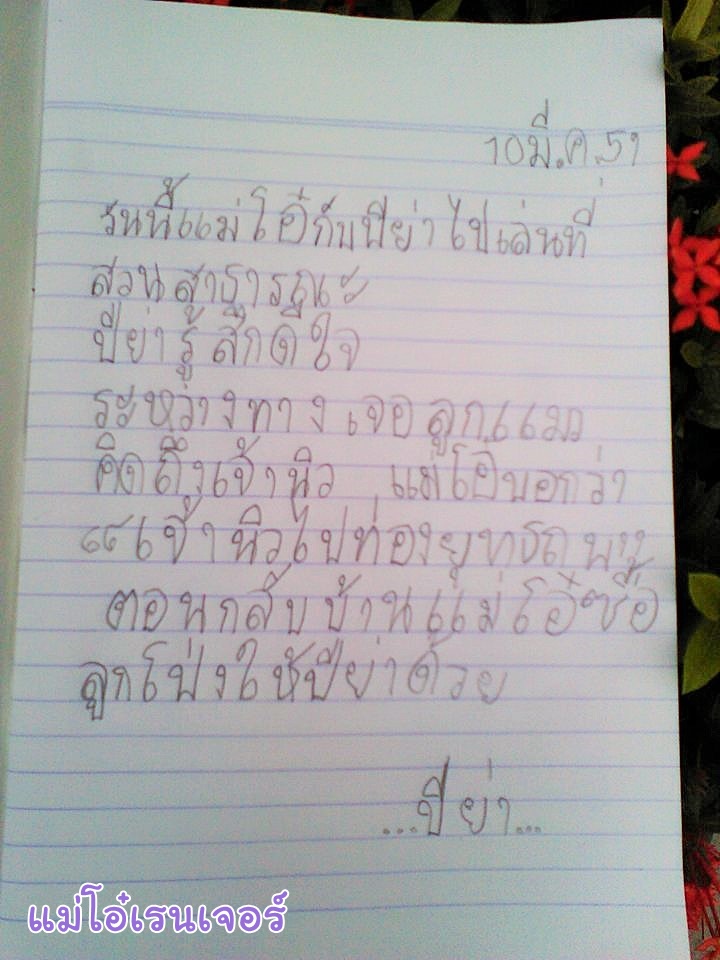 10 มี.ค. 51
วันนี้แม่โอ๋กับปีย่าไปเล่นที่
สวนสาธารณะ
ปีย่ารู้สึกดีใจ
ระหว่างทางเจอลูกแมว
คิดถึงเจ้านิว แม่โอ๋บอกว่า
“เจ้านิวไปท่องยุทธภพ”
ตอนกลับบ้านแม่โอ๋ซื้อ
ลูกโป่งให้ปีย่าด้วย
...ปีย่า...
แม่โอ๋เรนเจอร์